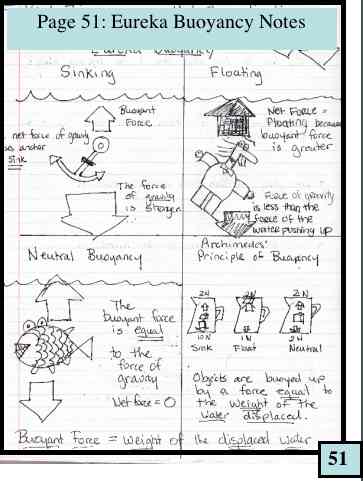 Page 51: Eureka Buoyancy Notes
Eureka Buoyancy
Sinking
Floating
Buoyant
Force
net force of gravity
anchor
sink
The force
of gravity
is stronger
Net Force =
Floating because
buoyant force
is greater
Force of gravity
is less than the
force of the
water pushing up
Neutral Buoyancy
The
buoyant force
is equal
to the
force of
gravity
Net force = 0
Archimedes'
Principle of Buoyancy
2N 2N 2N
10N 1N 2N
Sink Float Neutral
Objects are buoyed up
by a force equal to
the weight of the
water displaced.
Buoyant Force = weight of the displaced water
51